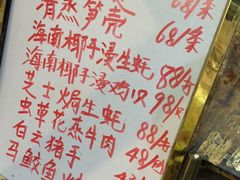 68/条
清蒸笋壳 68/条
海南椰子浸生蚝 88/
海南椰子浸鸡 98/
芝士焗生蚝 88/
虫草花蒸牛肉 48/
白云猪手
马鲛鱼